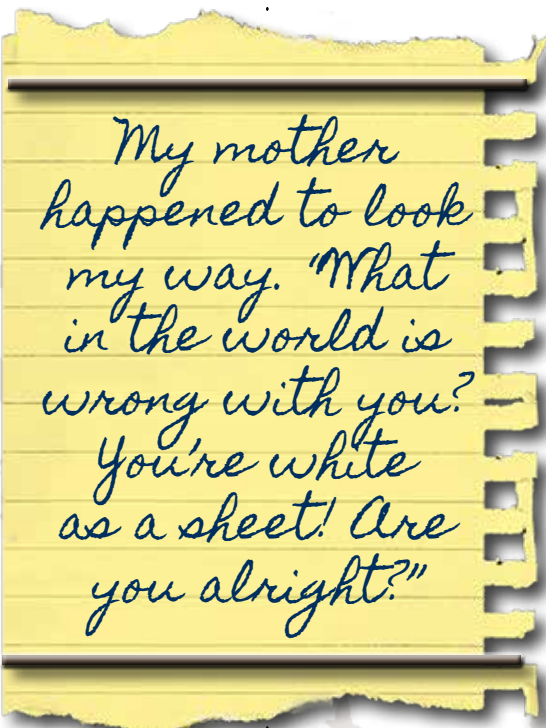 My mother
happened to look
my way. "What
in the world is
wrong with you?
You're white
as a sheet! Are
you alright?"